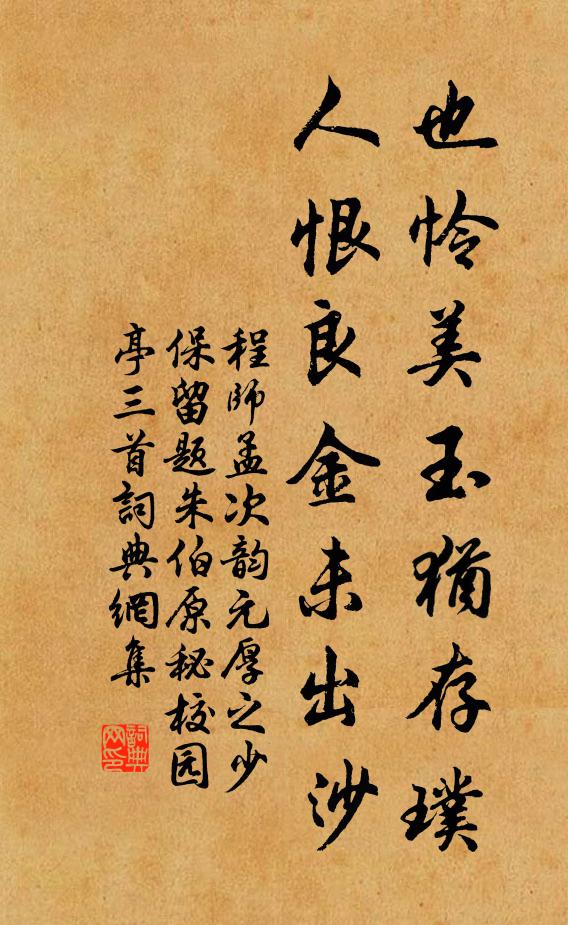 也怜美玉犹存璞
人恨良金未出沙
程師孟次韵元厚之少
保留题朱伯原秘校园
亭三首詞典網集
詞典
网印